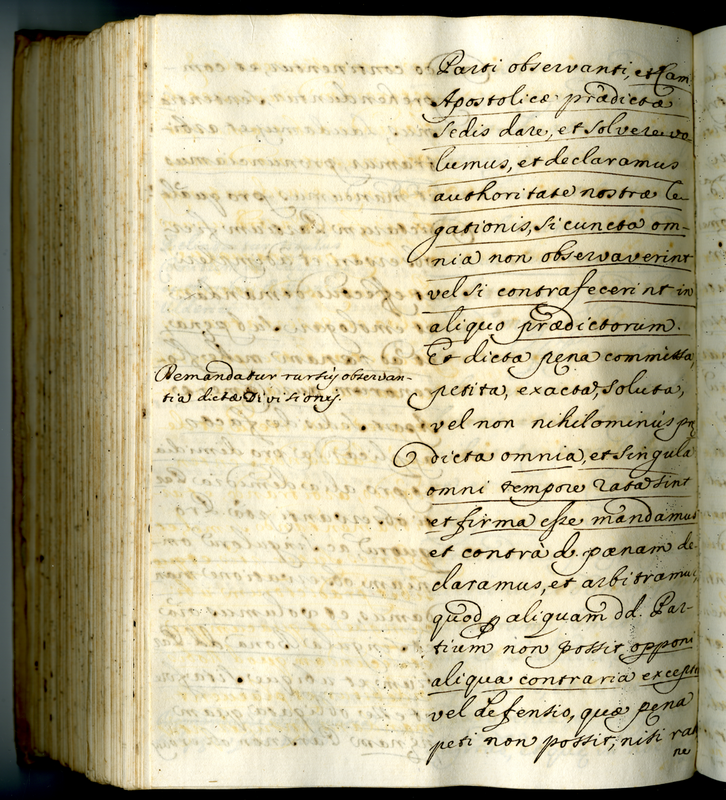 Parti observanti, et Cam
Apostolicæ prædictæ
Sedis dare, et solvere vo
lumus, et declaramus
authoritate nostræ le-
gationis, si cuncta om-
nia non observaverint
vel si contrafecerint in
aliquo prædictorum.
Et dicta pena commissa,
petita, exacta, soluta,
vel non nihilominùs præ
dicta omnia, et singula
omni tempore rata sint
et firma esse mandamus
et contrà d. pænam de-
claramus, et arbitramur,
quod p aliquam dd. Par-
tium non possit opponi
aliqua contraria excepti
vel defensio, quæ pena
peti non possit, nisi ra
ne
Remandatur rursus observan-
tia dictæ Divisionis.